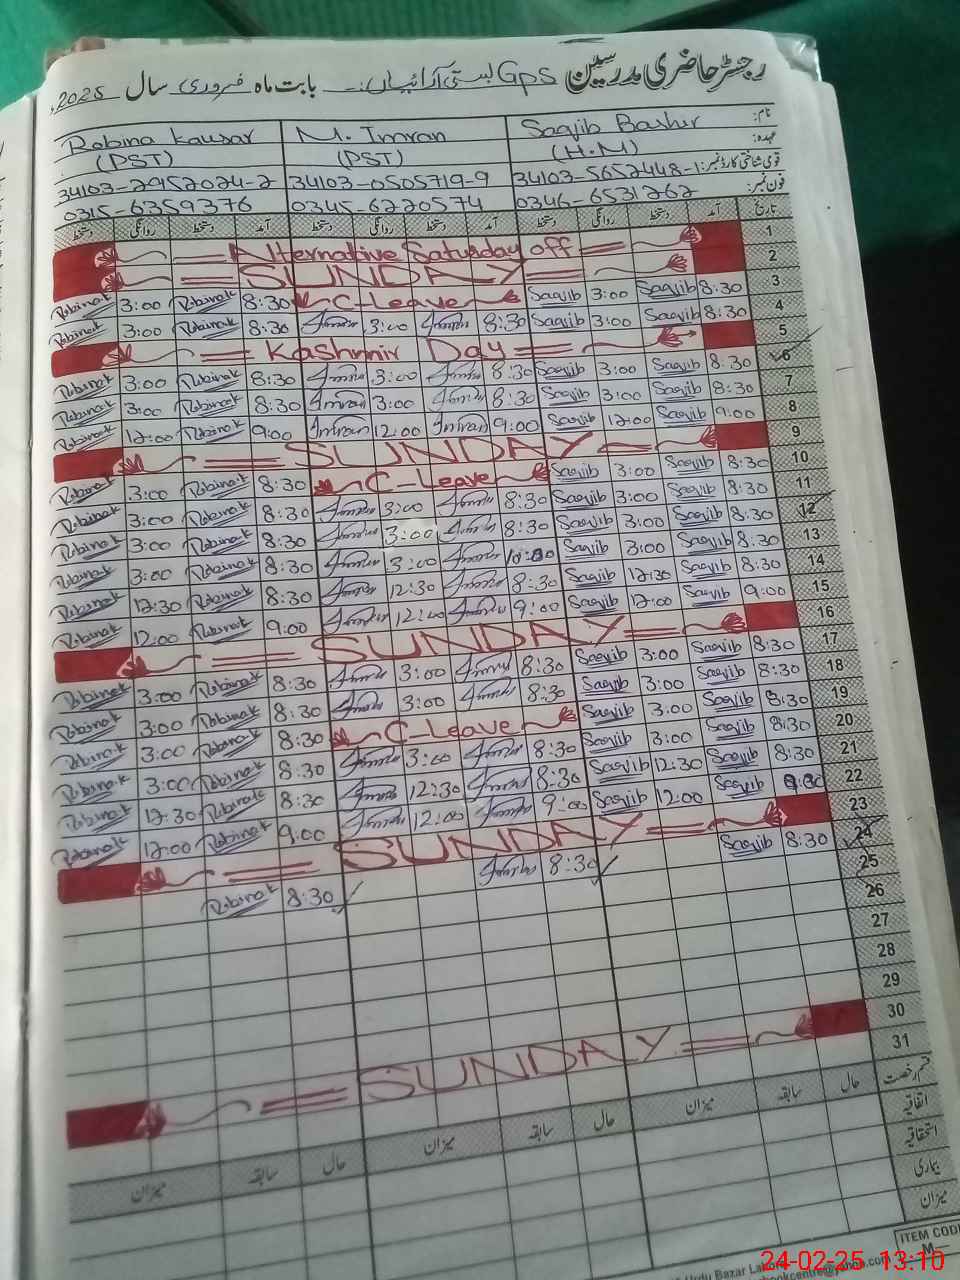 رجسٹر حاضری مدرسین Gps بستی آرائیاں بابت ماہ فروری سال 2025
Robina Kausar M. Imran Saqjib Bashir نام:
(PST) (PST) (H.M) عہدہ:
34103-2952024-2 34103-0505719-9 34103-5652448-1 قومی شناختی کارڈ نمبر:
0315-6359376 0345-6220574 0346-6531262 فون نمبر:
دستخط روانگی دستخط آمد دستخط روانگی دستخط آمد دستخط روانگی دستخط آمد تاریخ
Alternative Saturday off 1
SUNDAY 2
Robina K 3:00 Robina K 8:30 C-Leave Saqjib 3:00 Saqjib 8:30 3
Robina K 3:00 Robina K 8:30 Imran 3:00 Imran 8:30 Saqjib 3:00 Saqjib 8:30 4
Kashmir Day 5
Robina K 3:00 Robina K 8:30 Imran 3:00 Imran 8:30 Saqjib 3:00 Saqjib 8:30 6
Robina K 3:00 Robina K 8:30 Imran 3:00 Imran 8:30 Saqjib 3:00 Saqjib 8:30 7
Robina K 12:00 Robina K 9:00 Imran 12:00 Imran 9:00 Saqjib 12:00 Saqjib 9:00 8
SUNDAY 9
Robina K 3:00 Robina K 8:30 C-Leave Saqjib 3:00 Saqjib 8:30 10
Robina K 3:00 Robina K 8:30 Imran 3:00 Imran 8:30 Saqjib 3:00 Saqjib 8:30 11
Robina K 3:00 Robina K 8:30 Imran 3:00 Imran 8:30 Saqjib 3:00 Saqjib 8:30 12
Robina K 3:00 Robina K 8:30 Imran 3:00 Imran Saqjib 3:00 Saqjib 8:30 13
Robina K 12:30 Robina K 8:30 Imran 12:30 Imran 8:30 Saqjib 12:30 Saqjib 8:30 14
Robina K 12:00 Robina K 9:00 Imran 12:00 Imran 9:00 Saqjib 12:00 Saqjib 9:00 15
SUNDAY 16
Robina K 3:00 Robina K 8:30 Imran 3:00 Imran 8:30 Saqjib 3:00 Saqjib 8:30 17
Robina K 3:00 Robina K 8:30 Imran 3:00 Imran 8:30 Saqjib 3:00 Saqjib 8:30 18
Robina K 3:00 Robina K 8:30 C-Leave Saqjib 3:00 Saqjib 8:30 19
Robina K 3:00 Robina K 8:30 Imran 3:00 Imran 8:30 Saqjib 3:00 Saqjib 8:30 20
Robina K 12:30 Robina K 8:30 Imran 12:30 Imran 8:30 Saqjib 12:30 Saqjib 8:30 21
Robina K 12:00 Robina K 9:00 Imran 12:00 Imran 9:00 Saqjib 12:00 Saqjib 9:00 22
SUNDAY 23
Robina K 8:30 Imran 8:30 Saqjib 8:30 24
25
26
27
28
29
SUNDAY 30
31
میزان سابقہ حال میزان سابقہ حال میزان سابقہ حال قسم رخصت
اتفاقیہ
استحقاقیہ
بیماری
میزان
ITEM CODE
M-
Urdu Bazar Lahore
bookcentre@yahoo.com
24-02-25 13:10